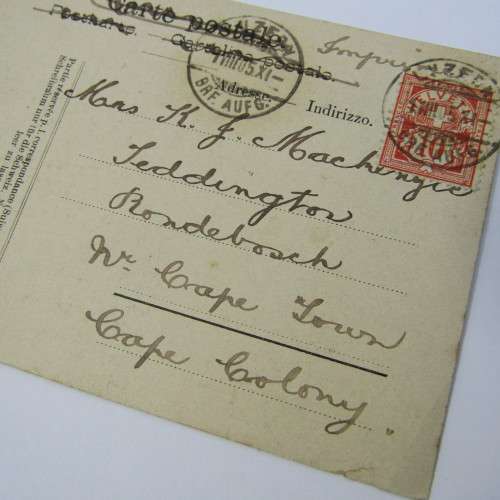 Carte postale.
Cartolina postale.
Adresse.
Indirizzo.
BRF. AUFG.
10
Miss K. J. Mackenzie
Teddington
Rondebosch
Nr. Cape Town
Cape Colony.